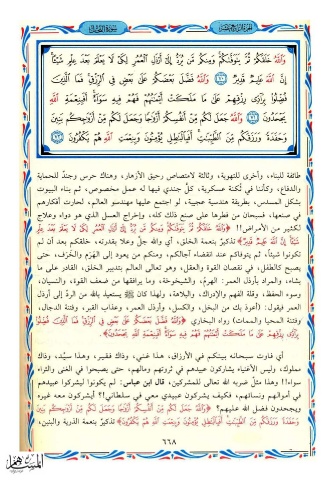 وَاللَّهُ خَلَقَكُمْ ثُمَّ يَتَوَفَّاكُمْ وَمِنكُم مَّن يُرَدُّ إِلَىٰ أَرْذَلِ الْعُمُرِ لِكَيْ لَا يَعْلَمَ بَعْدَ عِلْمٍ شَيْئًا
إِنَّ اللَّهَ عَلِيمٌ قَدِيرٌ ﴿٧٠﴾ وَاللَّهُ فَضَّلَ بَعْضَكُمْ عَلَىٰ بَعْضٍ فِي الرِّزْقِ فَمَا الَّذِينَ
فُضِّلُوا بِرَادِّي رِزْقِهِمْ عَلَىٰ مَا مَلَكَتْ أَيْمَانُهُمْ فَهُمْ فِيهِ سَوَاءٌ أَفَبِنِعْمَةِ اللَّهِ
يَجْحَدُونَ ﴿٧١﴾ وَاللَّهُ جَعَلَ لَكُم مِّنْ أَنفُسِكُمْ أَزْوَاجًا وَجَعَلَ لَكُم مِّنْ أَزْوَاجِكُم بَنِينَ
وَحَفَدَةً وَرَزَقَكُم مِّنَ الطَّيِّبَاتِ أَفَبِالْبَاطِلِ يُؤْمِنُونَ وَبِنِعْمَتِ اللَّهِ هُمْ يَكْفُرُونَ ﴿٧٢﴾
طائفة للبناء، وأخرى للتهوية، وثالثة لامتصاص رحيق الأزهار، وهناك حرس وجندٌ للحماية
والدفاع، وكأننا في ثكنة عسكرية، كلُّ جندي فيها له عمل مخصوص، ثم بناء البيوت
بشكل المسدس، بطريقة هندسية عجيبة، لو اجتمع عليها مهندسو العالم، لحارت أفكارهم
في صنعها، فسبحان من فطرها على صنع ذلك كله، وإخراج العسل الذي هو دواء وعلاج
لكثير من الأمراض!! ﴿وَاللَّهُ خَلَقَكُمْ ثُمَّ يَتَوَفَّاكُمْ وَمِنكُم مَّن يُرَدُّ إِلَىٰ أَرْذَلِ الْعُمُرِ لِكَيْ لَا يَعْلَمَ بَعْدَ عِلْمٍ
شَيْئًا إِنَّ اللَّهَ عَلِيمٌ قَدِيرٌ﴾ تذكيرٌ بنعمة الخلق، أي والله جلَّ وعلا بقدرته، خلقكم بعد أن لم
تكونوا شيئاً، ثم يتوفاكم عند انقضاء آجالكم، ومنكم من يعود إلى الهَرَم والخَرَف، حتى
يصبح كالطفل، في نقصان القوة والعقل، وهو تعالى العالم بتدبير الخلق، القادر على ما
يشاء، والمراد بأرذل العمر: الهرمُ، والشيخوخة، وما يرافقها من ضعف القوة، والنسيان،
وسوء الحفظ، وقلة الفهم والإدراك، والبلاهة، ولهذا كان ﷺ يستعيذ بالله من الردِّ إلى أرذل
العمر فيقول: (أعوذ بك من البخل، والكسل، وأرذل العمر، وعذاب القبر، وفتنة الدجال،
وفتنة المحيا والممات) رواه البخاري ﴿وَاللَّهُ فَضَّلَ بَعْضَكُمْ عَلَىٰ بَعْضٍ فِي الرِّزْقِ فَمَا الَّذِينَ فُضِّلُوا
بِرَادِّي رِزْقِهِمْ عَلَىٰ مَا مَلَكَتْ أَيْمَانُهُمْ فَهُمْ فِيهِ سَوَاءٌ أَفَبِنِعْمَةِ اللَّهِ يَجْحَدُونَ﴾.
أي فاوت سبحانه بينكم في الأرزاق، هذا غني، وذاك فقير، وهذا سيِّد، وذاك
مملوك، وليس الأغنياء يشاركون عبيدهم في ثروتهم ومالهم، حتى يصبحوا في الغنى والثراء
سواء!! وهذا مثلٌ ضربه الله تعالى للمشركين، قال ابن عباس: لم يكونوا ليشركوا عبيدهم
في أموالهم ونسائهم، فكيف يشركون عبيدي معي في سلطاني؟! أيشركون معه غيره
ويجحدون فضل الله عليهم؟ ﴿وَاللَّهُ جَعَلَ لَكُم مِّنْ أَنفُسِكُمْ أَزْوَاجًا وَجَعَلَ لَكُم مِّنْ أَزْوَاجِكُم بَنِينَ
وَحَفَدَةً وَرَزَقَكُم مِّنَ الطَّيِّبَاتِ أَفَبِالْبَاطِلِ يُؤْمِنُونَ وَبِنِعْمَتِ اللَّهِ هُمْ يَكْفُرُونَ﴾ تذكيرٌ بنعمة الذرية والبنين،
٦٦٨